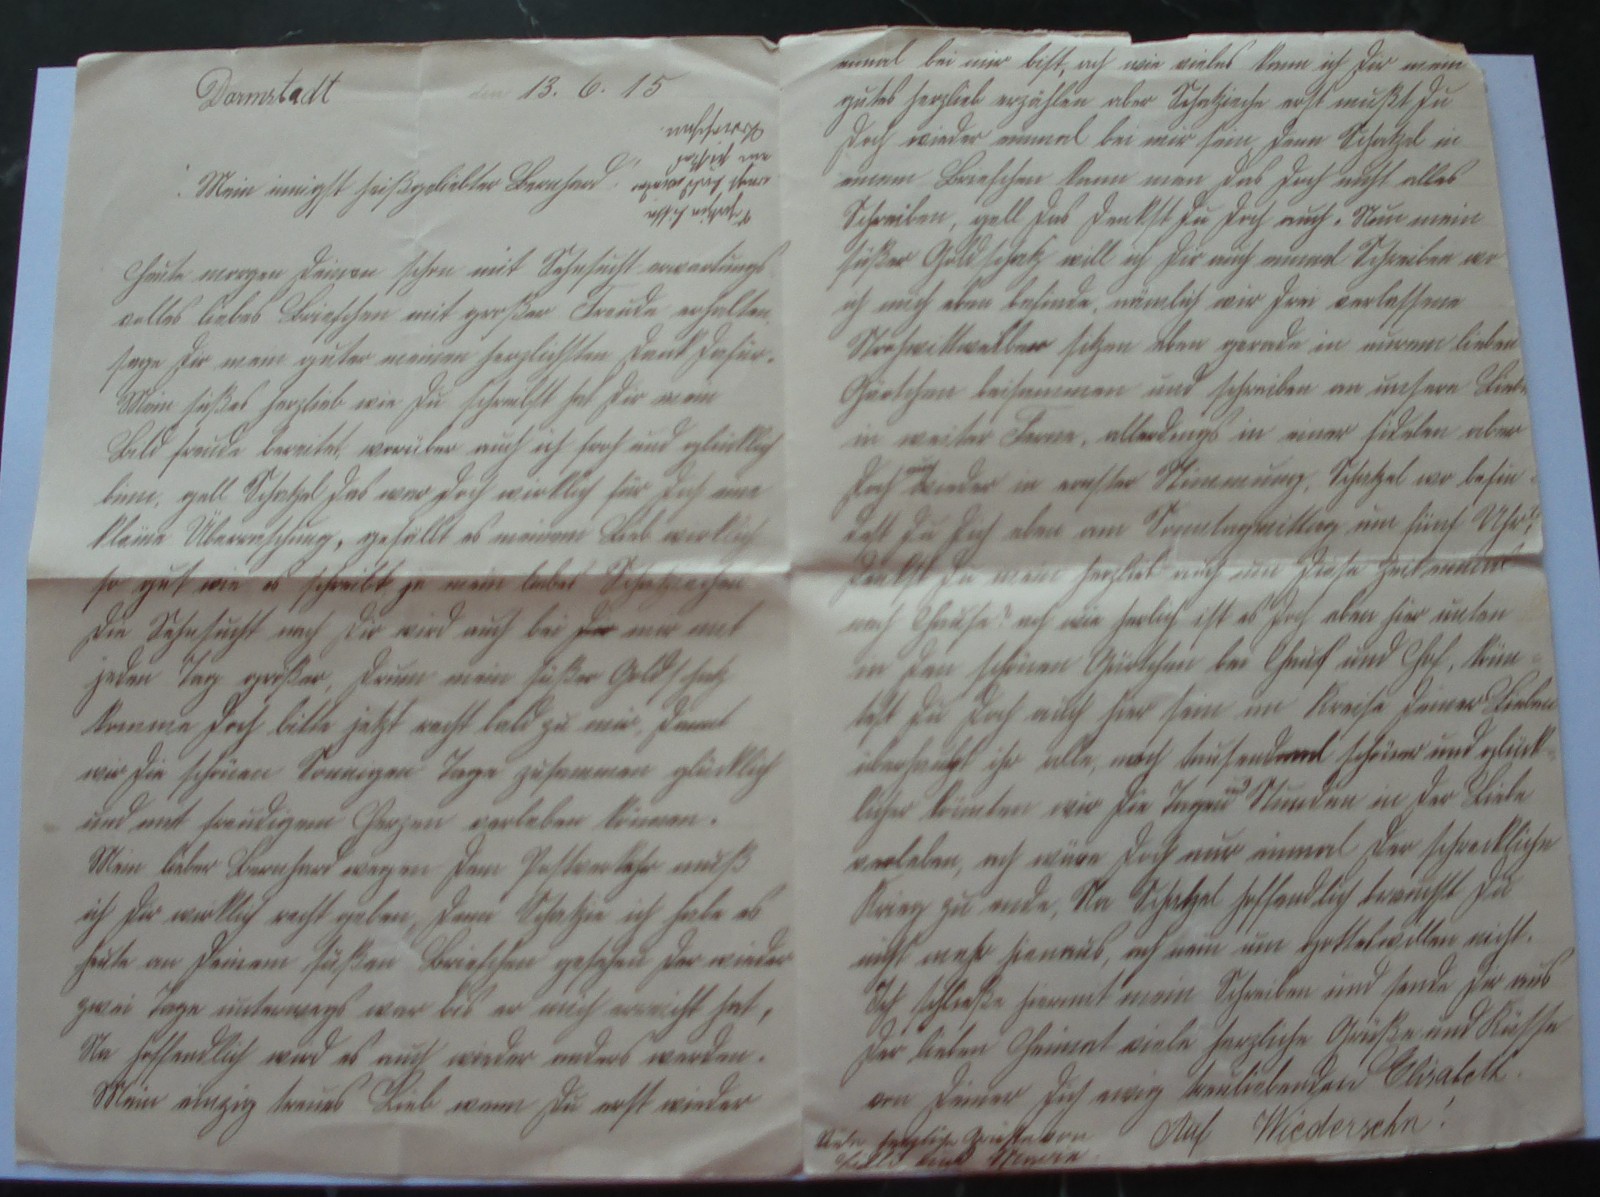 Darmstadt den 13. 6. 15
Mein innigst heißgeliebter Bernhard!
Heute morgen Deinen schon mit Sehnsucht erwartungs-
volles liebes Briefchen mit großer Freude erhalten,
sage Dir mein guter meinen herzlichsten Dank dafür.
Mein süßes Herzlieb wie Du schreibst hat Dir mein
Bild freude bereitet, worüber auch ich froh und glücklich
binn, gell Schatzel das war doch wirklich für Dich eine
kleine Überraschung, gefällt es meinem Lieb wirklich
so gut wie es schreibt, ja mein liebes Schatzichen
die Sehnsucht nach Dir wird auch bei mir mit
jeden Tag größer, drum mein süßer Goldschatz
komme doch bitte jetzt recht bald zu mir, damit
wir die schönen Sonnigen Tage zusammen glücklich
und mit freudigem Herzen verleben können.
Mein lieber Bernhard wegen dem Postverkehr muß
ich Dir wirklich recht geben, denn Schatzie ich habe es
heute an Deinem süßen Briefchen gesehen der wieder
zwei Tage unterwegs war bis er mich erreicht hat,
Na hoffendlich wird es auch wieder anders werden.
Mein einzig treues Lieb wenn Du erst wieder
einmal bei mir bist, ach wie vieles kann ich Dir mein
gutes Herzlieb erzählen aber Schatzieche erst mußt Du
doch wieder einmal bei mir sein, denn Schatzel in
einem Briefchen kann man das doch nicht alles
Schreiben, gell das denkst Du doch auch. Nun mein
süßer Goldschatz will ich Dir auch einmal Schreiben wo
ich mich eben befinde, nämlich wir drei verlassene
Strohwittweiber sitzen eben gerade in eurem lieben
Gärtchen beisammen und schreiben an unsere Liebe
in weiter Ferne, allerdings in einer fidelen aber
doch auch wieder in ernster Stimmung, Schatzel wo befin-
dest Du Dich eben am Sonntagmittag um fünf Uhr?
Denkst Du mein Herzlieb auch um diese Zeit einmal
nach Hause? ach wie herlich ist es doch eben hier unten
in den schönen Gärtchen bei Haus und Hof, könn-
test Du doch auch hier sein im Kreise Deiner Lieben
überhaupt ihr alle, noch tausendmal schöner und glück-
licher könnten wir die Tagen und Stunden in der Liebe
verleben, ach wäre doch nur einmal der schreckliche
Krieg zu ende, Na Schatzel hoffendlich brauchst Du
nicht mehr hienaus, ach nein um gotteswillen nicht.
Ich schließe hiermit mein Schreiben und sende Dir aus
der lieben Heimat viele herzliche Grüße und Küsse
von Deiner Dich ewig treuliebenden Elisabeth.
Auf Wiedersehn!
Viele herzliche Grüße von
und Marie